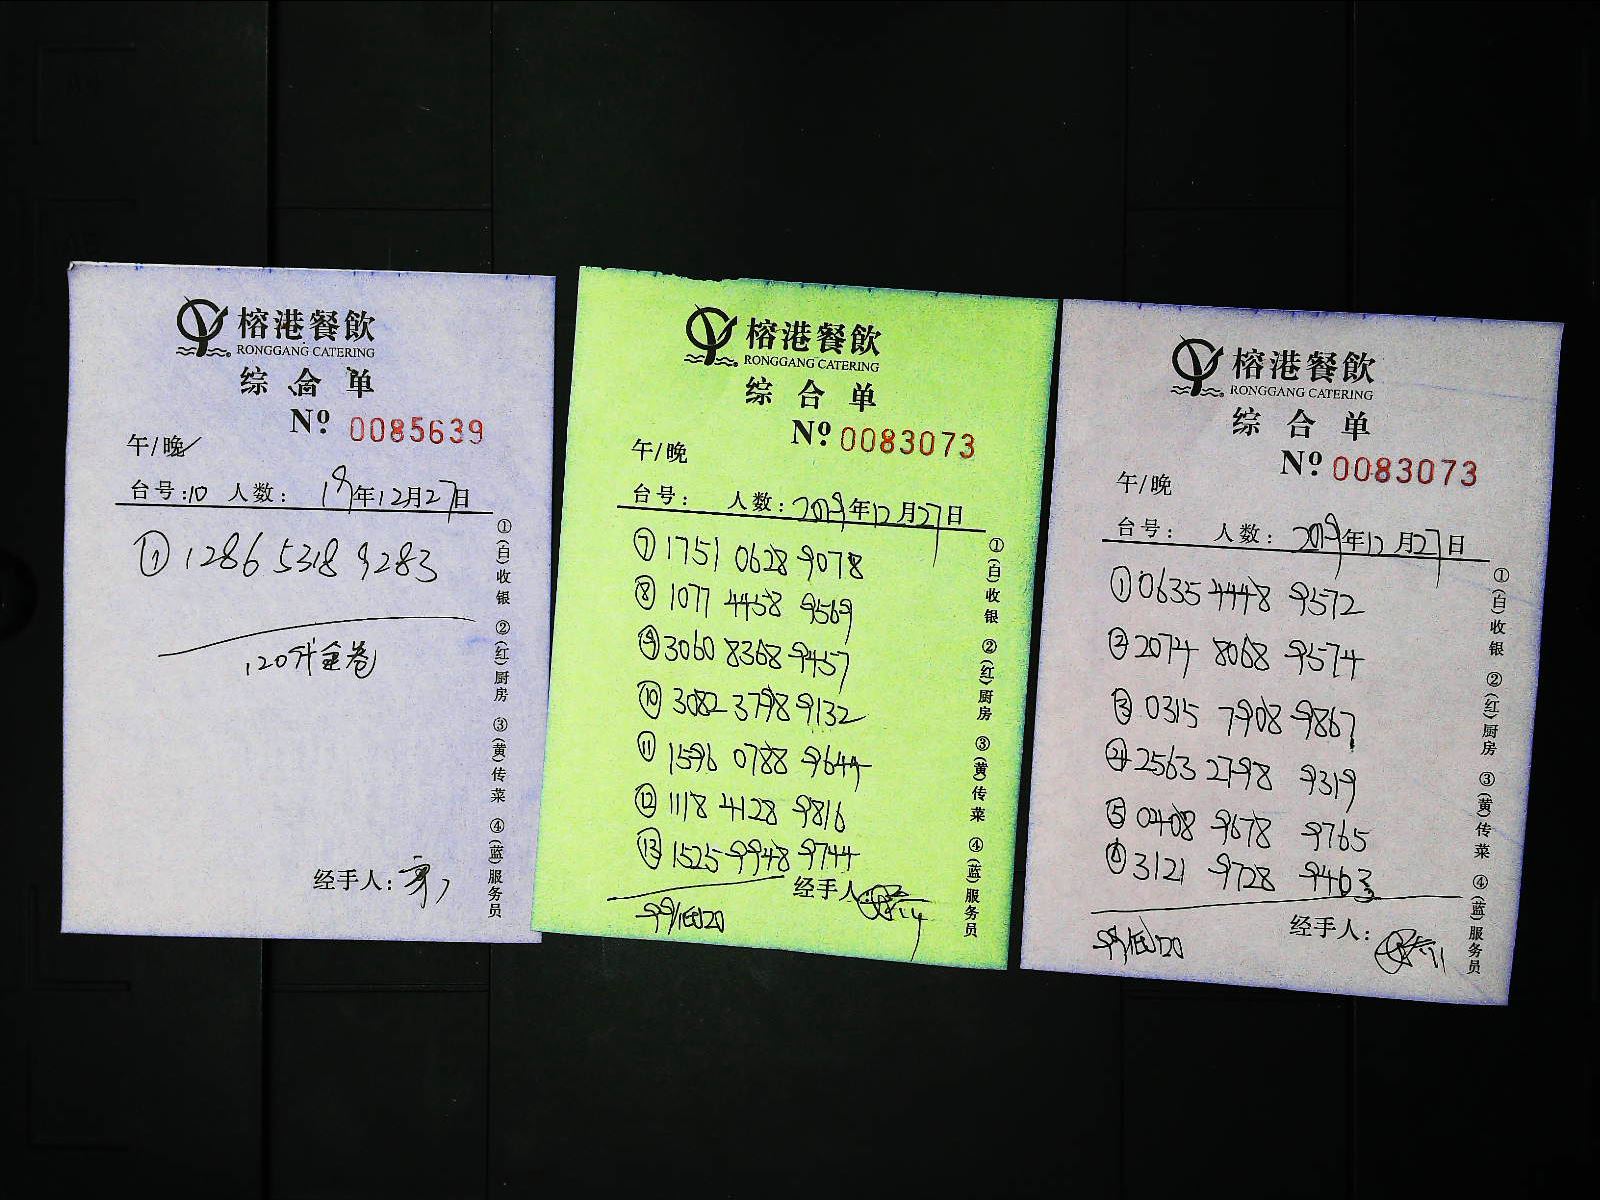 榕港餐飲
RONGGANG CATERING
综合单
Nº 0085639
午/晚
台号:10 人数: 19年12月27日
① 1286 5318 9283
120升金卷
经手人:
①(白)收银 ②(红)厨房 ③(黄)传菜 ④(蓝)服务员
榕港餐飲
RONGGANG CATERING
综合单
Nº 0083073
午/晚
台号: 人数: 2019年12月27日
⑦ 1751 0628 9078
⑧ 1077 4458 9569
⑨ 3060 8368 9457
⑩ 3082 3798 9132
⑪ 1596 0788 9644
⑫ 1118 4128 9816
⑬ 1525 9948 9744
99抵120
经手人
①(白)收银 ②(红)厨房 ③(黄)传菜 ④(蓝)服务员
榕港餐飲
RONGGANG CATERING
综合单
Nº 0083073
午/晚
台号: 人数: 2019年12月27日
① 0635 4448 9572
② 2074 8068 9574
③ 0315 7908 9867
④ 2563 2798 9319
⑤ 0408 9678 9765
⑥ 3121 9728 9463
99抵120
经手人:
①(白)收银 ②(红)厨房 ③(黄)传菜 ④(蓝)服务员